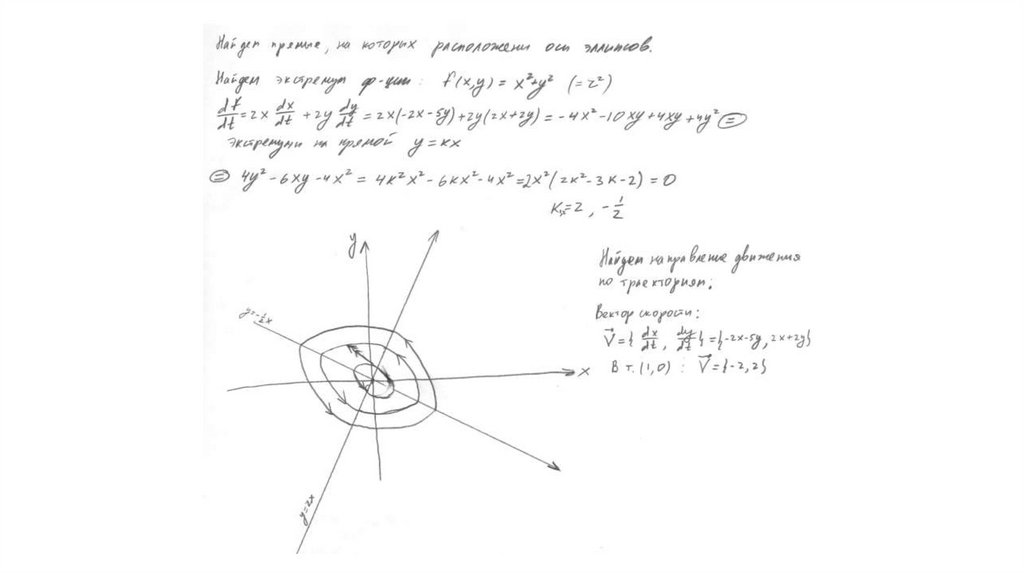 Найдем прямые, на которых расположены оси эллипсов.
Найдем экстремум ф-ции: f(x,y) = x²+y² (=r²)
df/dt = 2x dx/dt + 2y dy/dt = 2x(-2x-5y)+2y(2x+2y) = -4x²-10xy+4xy+4y² ⊜
экстремумы на прямой y=kx
⊜ 4y²-6xy-4x² = 4k²x²-6kx²-4x²=2x²(2k²-3k-2) = 0
k₁,₂=2, -1/2
y
y=-½x
x
y=2x
Найдем направление движения
по траекториям:
Вектор скорости:
V⃗={dx/dt, dy/dt}={-2x-5y, 2x+2y}
В т.(1,0) : V⃗={-2,2}